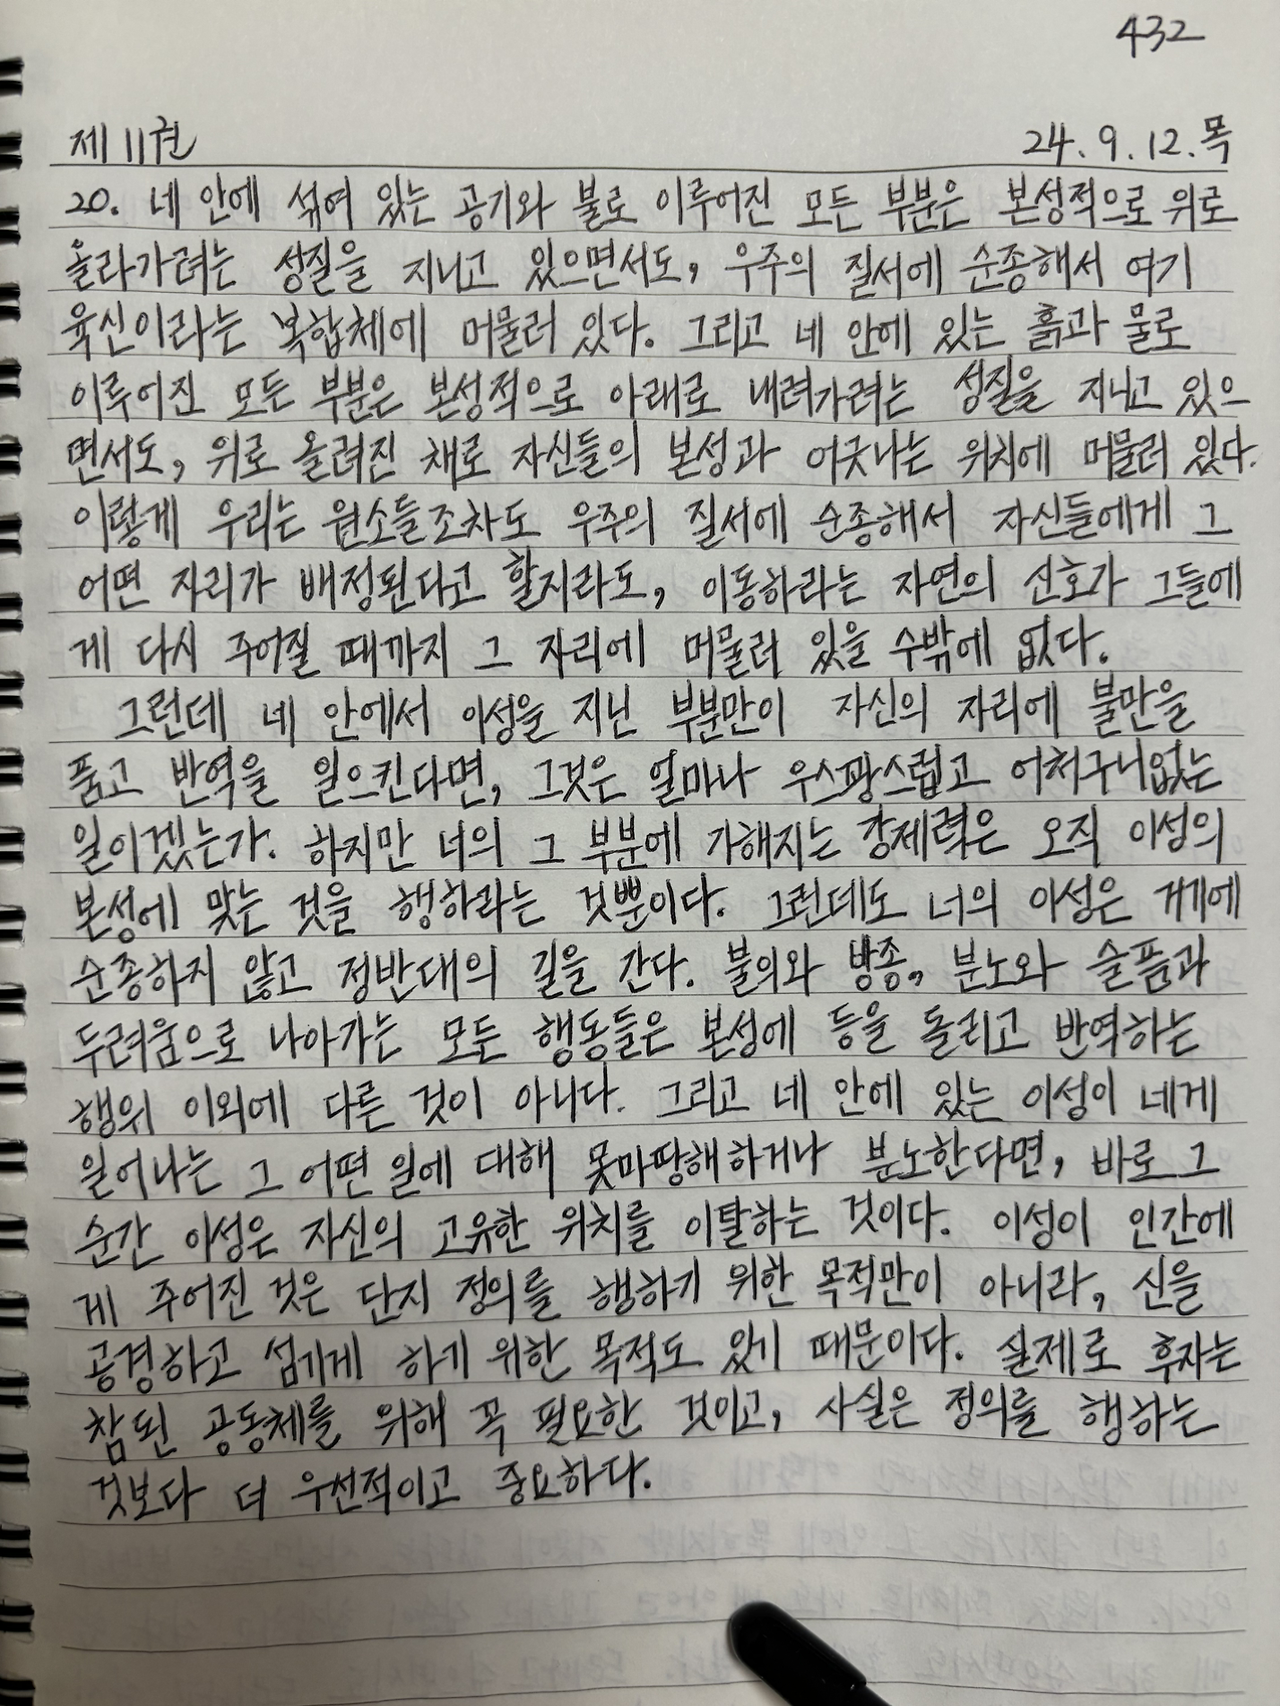 432
제 11권 24.9.12.목
20. 네 안에 섞여 있는 공기와 불로 이루어진 모든 부분은 본성적으로 위로
올라가려는 성질을 지니고 있으면서도, 우주의 질서에 순종해서 여기
육신이라는 복합체에 머물러 있다. 그리고 네 안에 있는 흙과 물로
이루어진 모든 부분은 본성적으로 아래로 내려가려는 성질을 지니고 있으
면서도, 위로 올려진 채로 자신들의 본성과 어긋나는 위치에 머물러 있다.
이렇게 우리는 원소들조차도 우주의 질서에 순종해서 자신들에게 그
어떤 자리가 배정된다고 할지라도, 이동하라는 자연의 신호가 그들에
게 다시 주어질 때까지 그 자리에 머물러 있을 수밖에 없다.
그런데 네 안에서 이성을 지닌 부분만이 자신의 자리에 불만을
품고 반역을 일으킨다면, 그것은 얼마나 우스꽝스럽고 어처구니없는
일이겠는가. 하지만 너의 그 부분에 가해지는 강제력은 오직 이성의
본성에 맞는 것을 행하라는 것뿐이다. 그런데도 너의 이성은 거기에
순종하지 않고 정반대의 길을 간다. 불의와 방종, 분노와 슬픔과
두려움으로 나아가는 모든 행동들은 본성에 등을 돌리고 반역하는
행위 이외에 다른 것이 아니다. 그리고 네 안에 있는 이성이 네게
일어나는 그 어떤 일에 대해 못마땅해하거나 분노한다면, 바로 그
순간 이성은 자신의 고유한 위치를 이탈하는 것이다. 이성이 인간에
게 주어진 것은 단지 정의를 행하기 위한 목적만이 아니라, 신을
공경하고 섬기게 하기 위한 목적도 있기 때문이다. 실제로 후자는
참된 공동체를 위해 꼭 필요한 것이고, 사실은 정의를 행하는
것보다 더 우선적이고 중요하다.